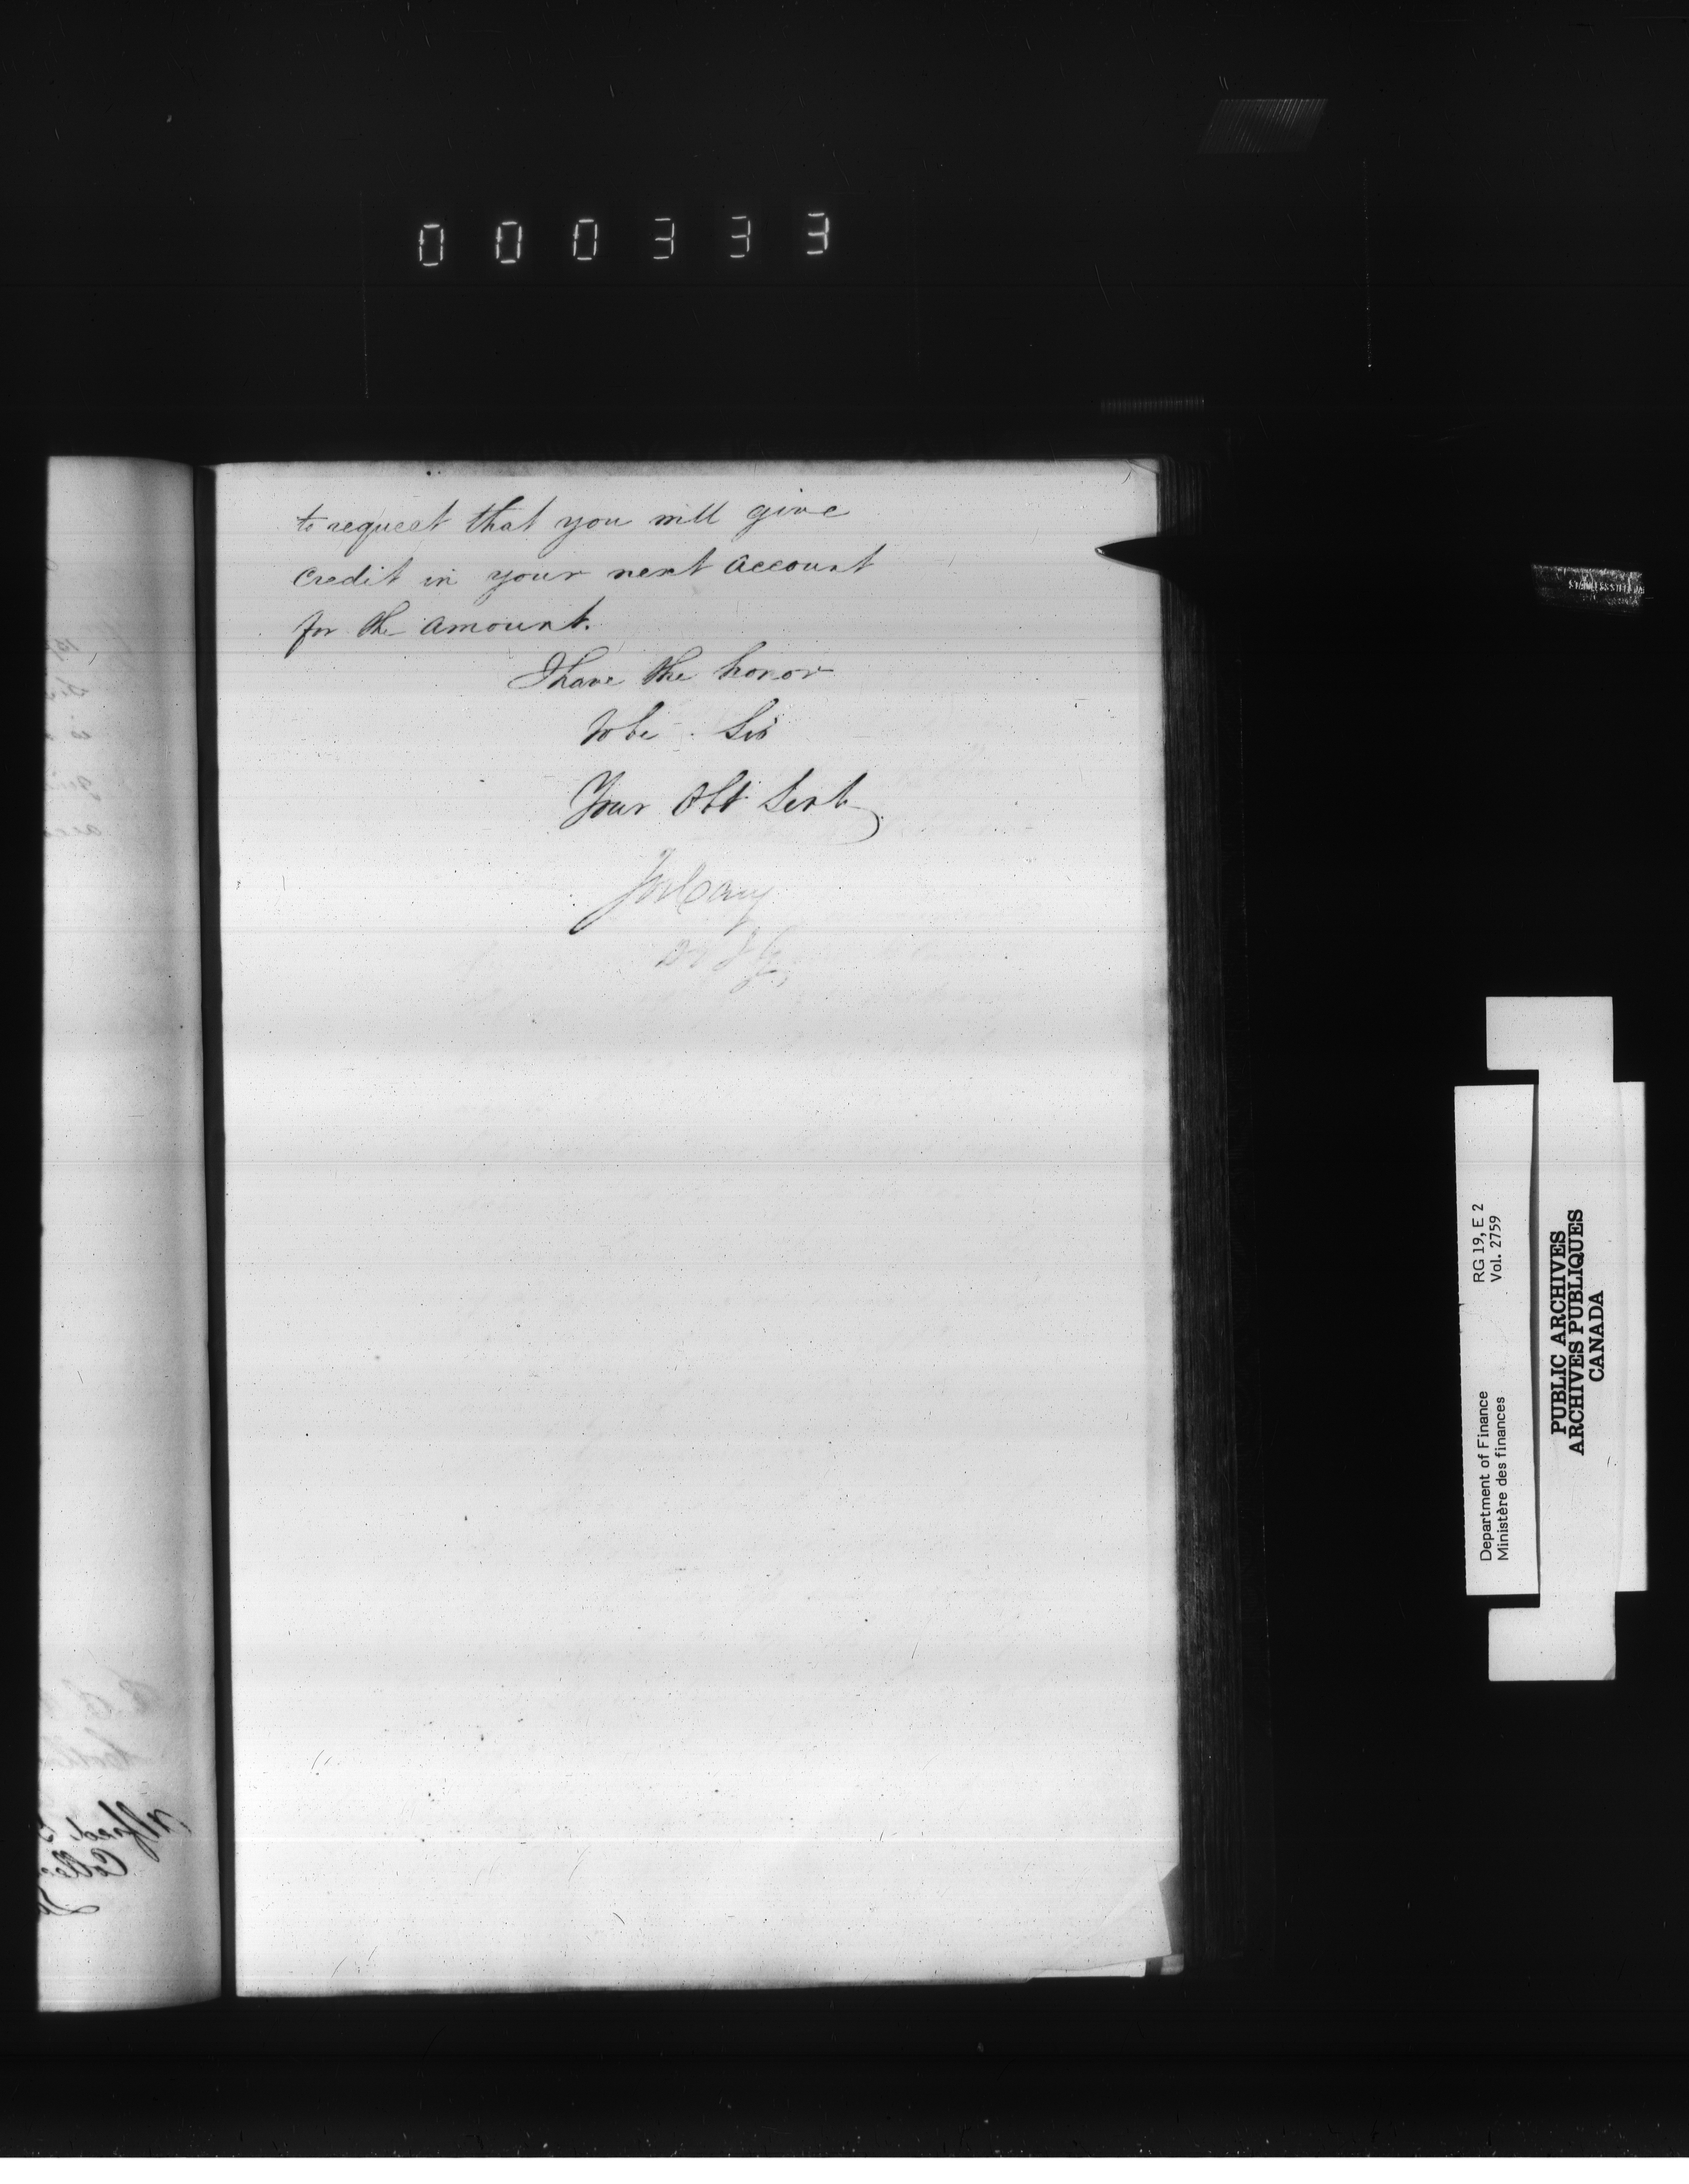 000333
to request that you will give
credit in your next account
for the amount.
I have the honor
to be Sir
Your Obt Servt
Jos Cary
RG 19, E 2
Vol. 2759
Department of Finance
Ministère des finances
PUBLIC ARCHIVES
ARCHIVES PUBLIQUES
CANADA